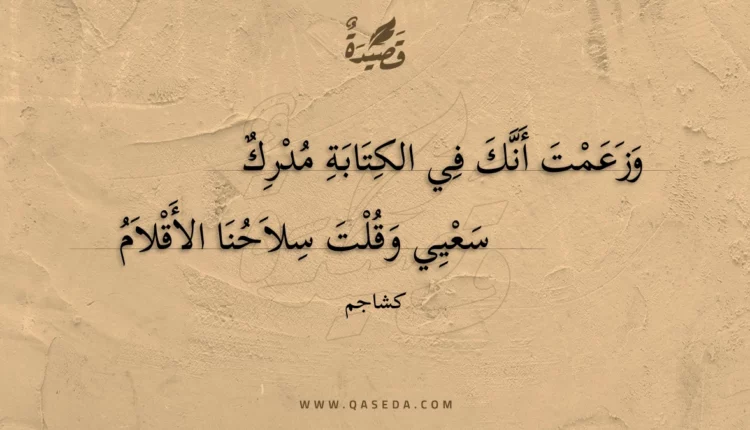 قَصِيدَةٌ
وَزَعَمْتَ أَنَّكَ فِي الكِتَابَةِ مُدْرِكٌ
سَعْيِي وَقُلْتَ سِلاَحُنَا الأَقْلاَمُ
كشاجم
WWW.QASEDA.COM